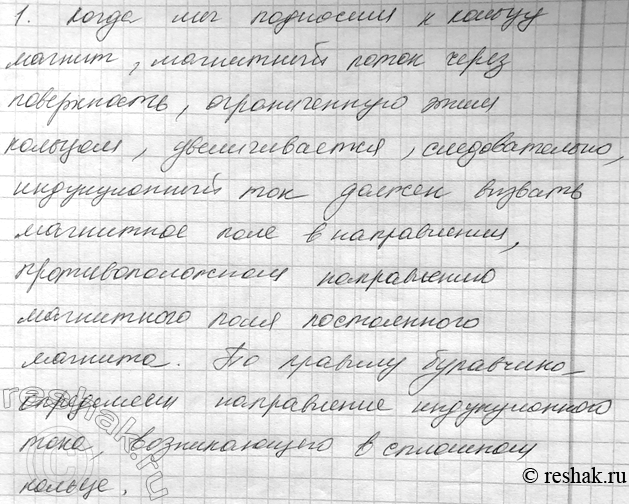 1. Когда мы подносим к кольцу
магнит, магнитный поток через
поверхность, ограниченную этим
кольцом, увеличивается, следовательно,
индукционный ток должен вызвать
магнитное поле в направлении,
противоположном направлению
магнитного поля постоянного
магнита. По правилу буравчика
определяем направление индукционного
тока, возникающего в сплошном
кольце.
reshak.ru
reshak.ru